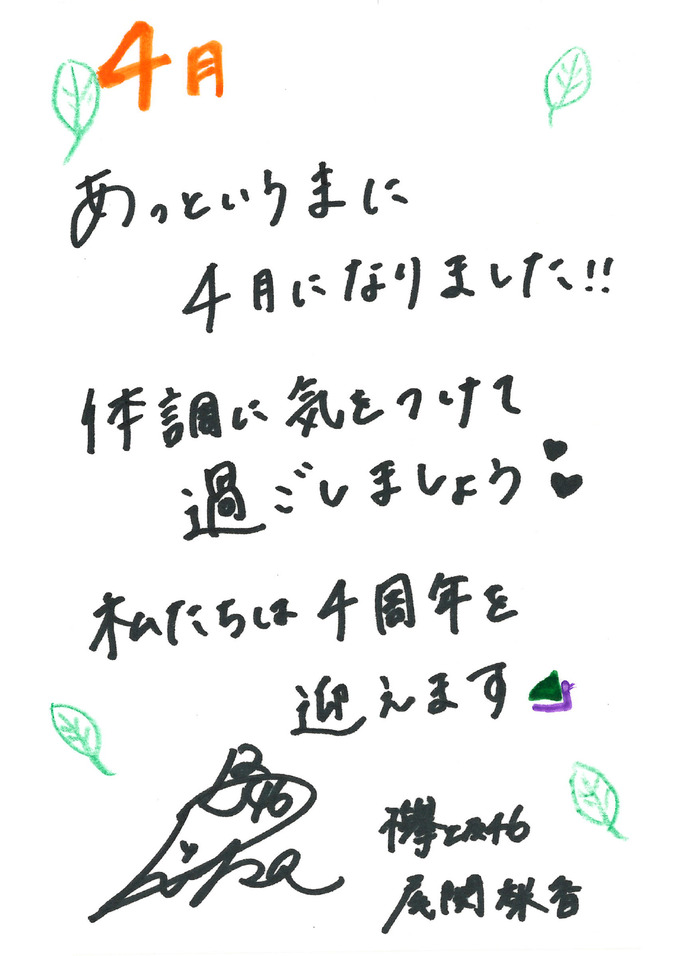 4月
あっというまに
4月になりました!!
体調に気をつけて
過ごしましょう
私たちは4周年を
迎えます
46
欅坂46
尾関梨香